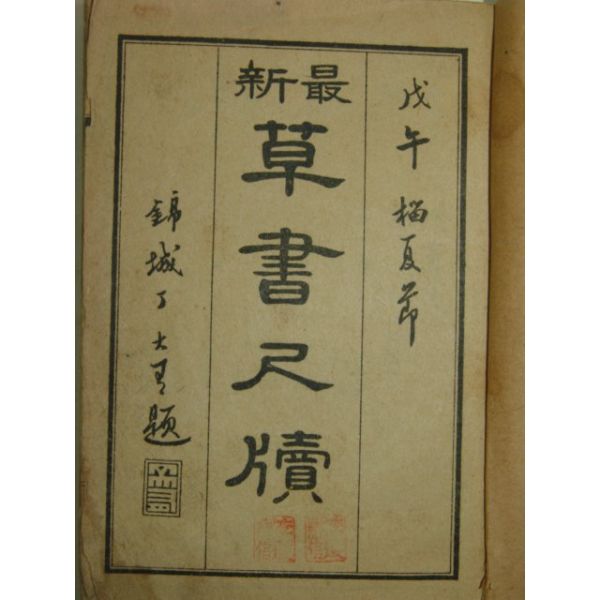 戊午榴夏節
最新
草書尺牘
錦城丁大青題